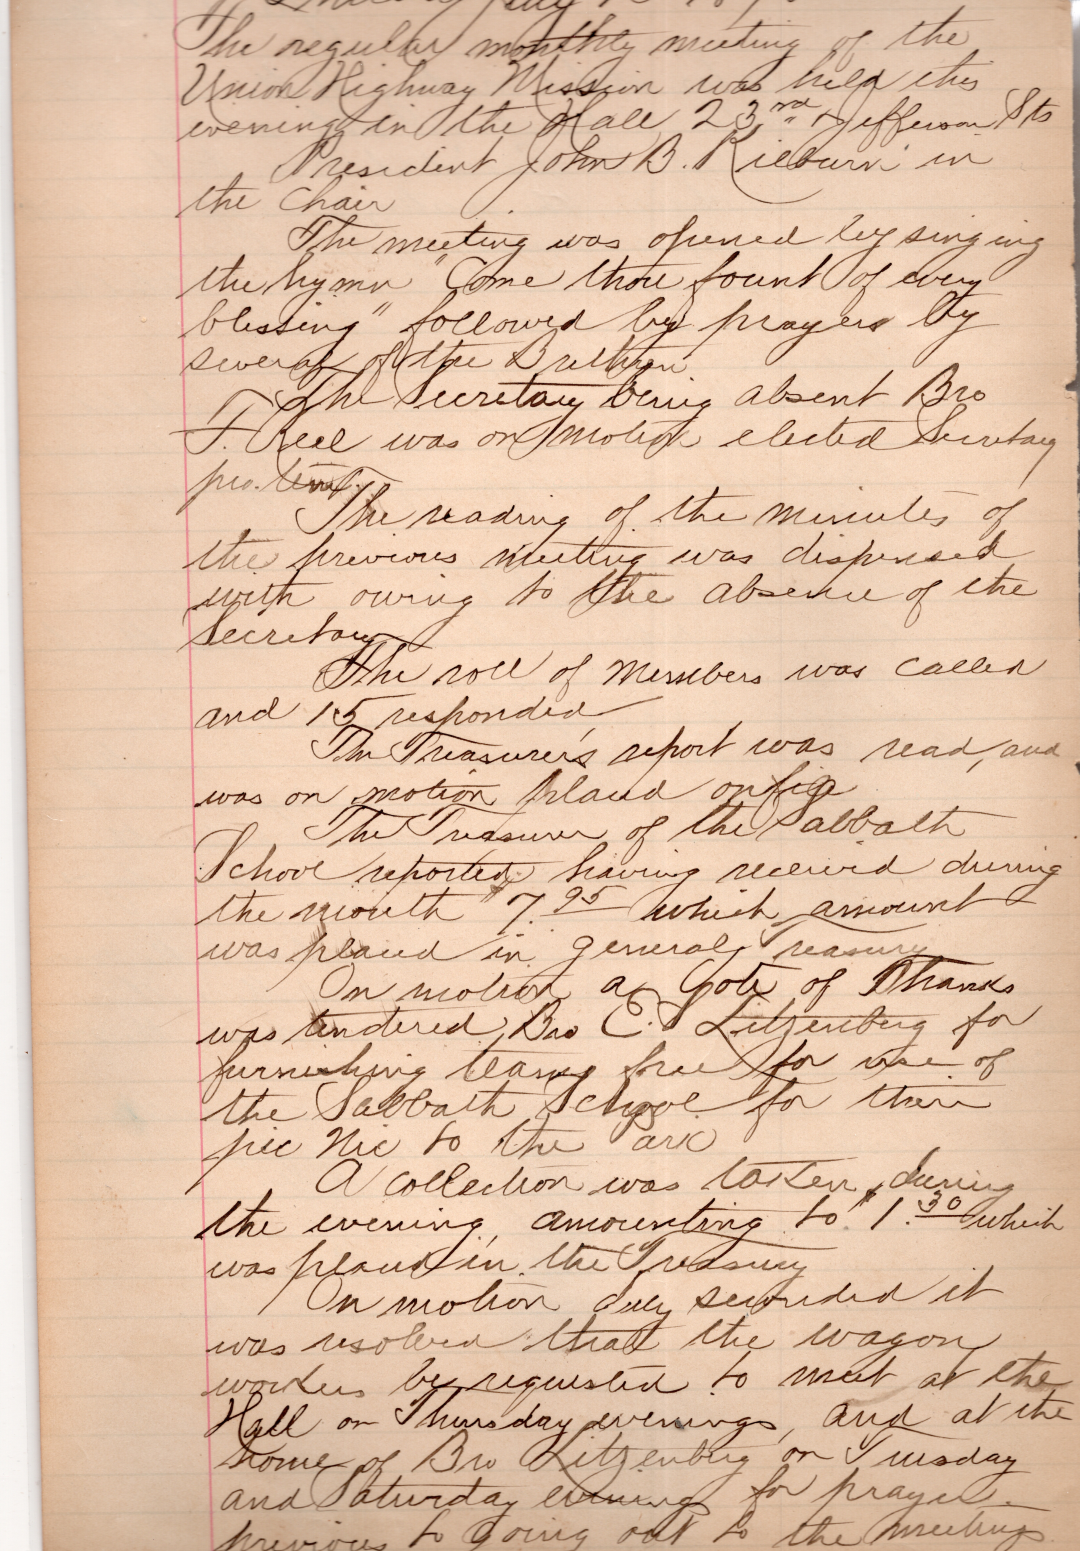 The regular monthly meeting of the
Union Highway Mission was held this
evening in the Hall 23rd & Jefferson Sts
President John B. Kilburn in
the Chair
The meeting was opened by singing
the hymn "Come thou fount of every
blessing" followed by prayers by
several of the Brethren
The Secretary being absent Bro
F. Reel was on motion elected Secretary
pro. tem.
The reading of the minutes of
the previous meeting was dispensed
with owing to the absence of the
Secretary
The roll of members was called
and 15 responded
The Treasurer's report was read, and
was on motion placed on file
The Treasurer of the Sabbath
School reported having received during
the month $7.95 which amount
was placed in general Treasury
On motion a Vote of Thanks
was tendered Bro C. Litzenberg for
furnishing teams free for use of
the Sabbath School for their
pic Nic to the Park
A collection was taken during
the evening, amounting to $1.30 which
was placed in the Treasury
On motion duly seconded it
was resolved that the wagon
workers be requested to meet at the
Hall on Thursday evenings, and at the
home of Bro Litzenberg on Tuesday
and Saturday evenings for prayer
previous to going out to the meetings